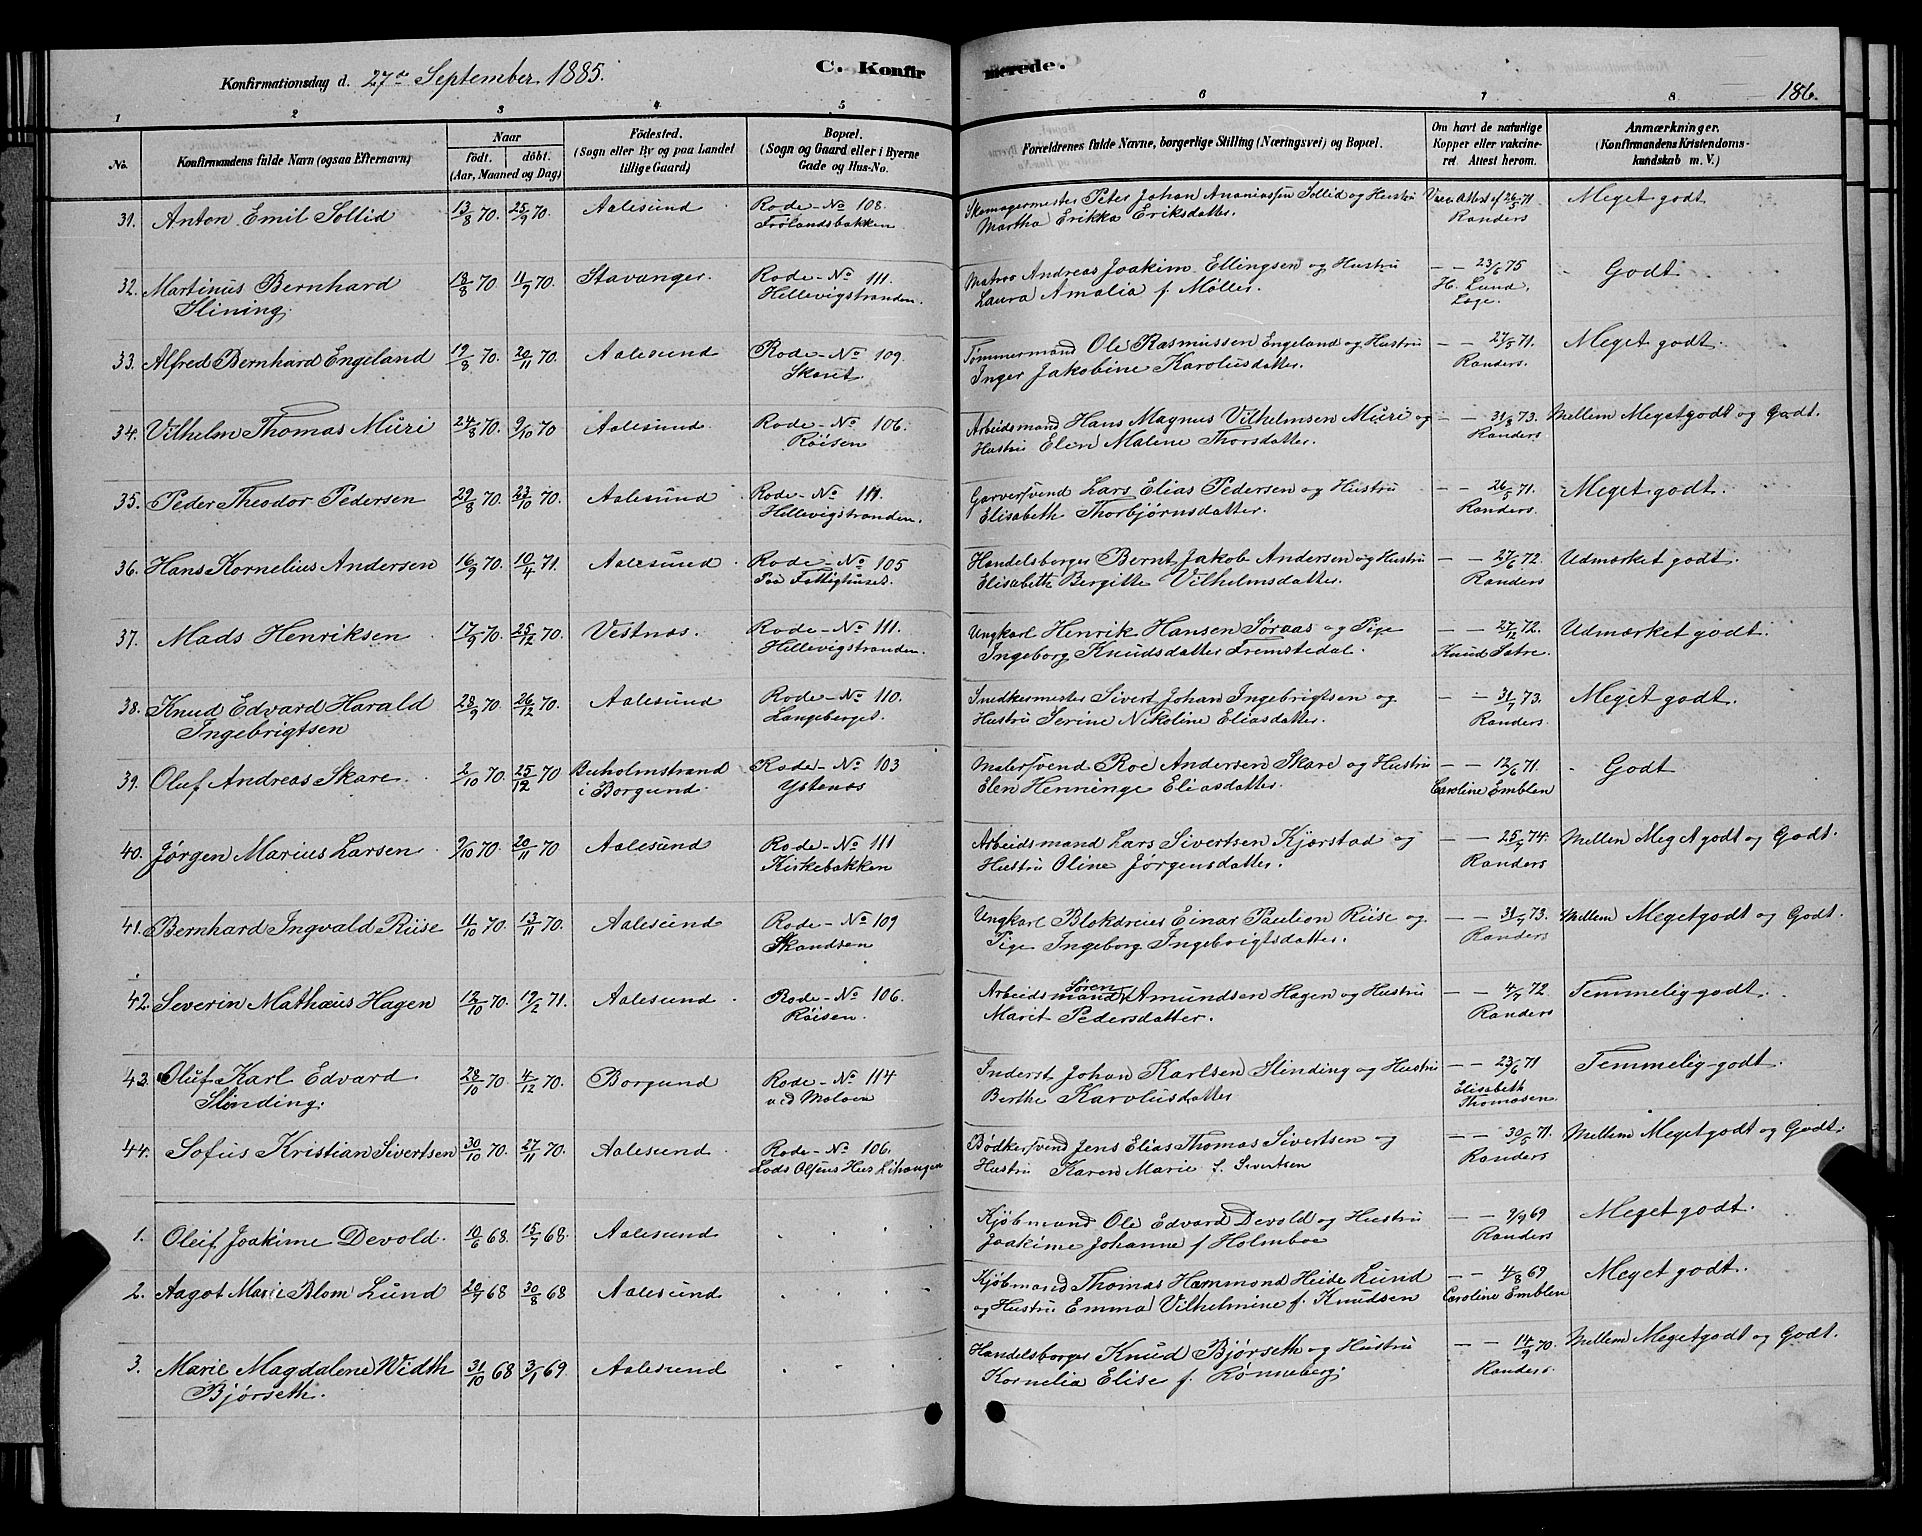 Konfirmationsdag d. 27de September 1885.
C. Konfirmerede.
186.
1 2 3 4 5 6 7 8
No.
Konfirmandens fulde Navn (ogsaa Efternavn)
Naar
født. døbt.
(Aar, Maaned og Dag)
Fødested.
(Sogn eller By og paa Landet
tillige Gaard)
Bopæl.
(Sogn og Gaard eller i Byerne
Gade og Hus-No.
Forældrenes fulde Navne, borgerlige Stilling (Næringsvei) og Bopæl.
Om havt de naturlige
Kopper eller vakcine-
ret. Attest herom.
Anmærkninger.
(Konfirmandens Kristendoms-
kundskab m. V.)
31. Anton Emil Sollid 13/8 70. 25/9 70. Aalesund Rode-No 108. Skomagermester Peter Johan Ananiassen Sollid og Hustru Vacc. Attest af 26/5 71 Meget godt
Frølandsbakken Martha Erikka Eriksdatter. Randers
32. Martinus Bernhard 18/8 70. 11/9 70. Stavanger. Rode-No 111. Matros Andreas Joakim Ellingsen og Hustru — — 23/6 75 Godt
Slining. Hellevigstranden. Laura Amalia f. Möller. H. Lund,
Læge.
33. Alfred Bernhard Engeland 19/8 70. 20/11 70. Aalesund Rode-No 109. Tømmermand Ole Rasmussen Engeland og Hustru — — 27/5 71. Meget godt.
Skaret. Inger Jakobine Karolusdatter. Randers.
34. Vilhelm Thomas Muri 24/8 70. 9/10 70 Aalesund. Rode-No 106. Arbeidsmand Hans Magnus Vilhelmsen Muri og — — 31/8 73. Mellem Megetgodt og Godt.
Röisen Hustru Elen Malene Thorsdatter. Randers
35. Peder Theodor Pedersen 29/8 70. 23/10 70. Aalesund Rode-No 111. Garversvend Lars Elias Pedersen og Hustru — — 26/5 71. Meget godt.
Hellevigstranden. Elisabeth Thorbjørnsdatter. Randers.
36. Hans Kornelius Andersen 16/9 70. 10/4 71. Aalesund Rode-No 105 Handelsborger Bernt Jakob Andersen og Hustru — — 27/6 72. Udmærket godt.
Paa Fattighuset. Elisabeth Bergitte Vilhelmsdatter. Randers
37. Mads Henriksen 17/9 70. 25/12 70. Vestnæs. Rode-No 111. Ungkarl Henrik Hansen Søraas og Pige — — 27/12 72. Udmærket godt.
Hellevigstranden. Ingeborg Knudsdatter Fremstedal. Knud Satre.
38. Knud Edvard Harald 28/9 70. 26/12 70. Aalesund Rode-No 110. Snedkermester Sivert Johan Ingebrigtsen og — — 31/7 73. Meget godt.
Ingebrigtsen Langeberget. Hustru Serine Nikoline Eliasdatter. Randers.
39. Oluf Andreas Skare. 2/10 70. 25/12 70 Buholmstrand Rode-No 103 Malersvend Roe Andersen Skare og Hustru — — 12/6 71. Godt
i Borgund. Ystenæs Elen Henninge Eliasdatter. Caroline Emblen
40. Jørgen Marius Larsen 9/10 70. 20/11 70 Aalesund Rode-No 111 Arbeidsmand Lars Sivertsen Kjærstad og — — 25/5 74. Mellem Meget godt og Godt.
Kirkebakken Hustru Oline Jørgensdatter. Randers
41. Bernhard Ingvald Riise 11/10 70. 13/11 70. Aalesund Rode-No 109 Ungkarl Blokdreier Einar Paulson Riise og — — 31/7 73. Mellem Megetgodt og Godt.
Skandsen Pige Ingeborg Ingebrigtsdatter. Randers
42. Severin Mathæus Hagen 12/10 70. 19/2 71. Aalesund. Rode-No 106. Arbeidsmand Søren Amundsen Hagen og Hustru — — 4/7 72. Temmelig godt.
Röisen. Marit Pedersdatter. Randers
43. Oluf Karl Edvard 28/10 70. 4/12 70. Borgund Rode-No 114 Inderst Johan Karlsen Slinding og Hustru — — 23/6 71 Temmelig godt.
Slinding. ved Moloen Berthe Karolusdatter Elisabeth
Thomasen
44. Sofus Kristian Sivertsen 30/10 70. 27/11 70. Aalesund. Rode-No 106. Bødkersvend Jens Elias Thomas Sivertsen og — — 30/5 71. Mellem Megetgodt og Godt.
Lods Olsens Hus Lihaugen Hustru Karen Marie f. Sivertsen Randers
1. Oleif Joakime Devold. 10/6 68. 15/7 68. Aalesund Kjøbmand Ole Edvard Devold og Hustru — — 9/9 69 Meget godt.
Joakime Johanne f Holmboe Randers
2. Aagot Marie Blom Lund 20/7 68 30/8 68 Aalesund Kjøbmand Thomas Hammond Heide Lund — — 4/8 69 Meget godt.
og Hustru Emma Vilhelmine f. Knudsen Caroline Emblen
3. Marie Magdalene Width 31/10 68 3/1 69 Aalesund Handelsborger Knud Bjørseth og Hustru — — 14/9 70. Mellem Megetgodt og Godt.
Bjørseth. Kornelia Elise f. Rønneberg Randers.